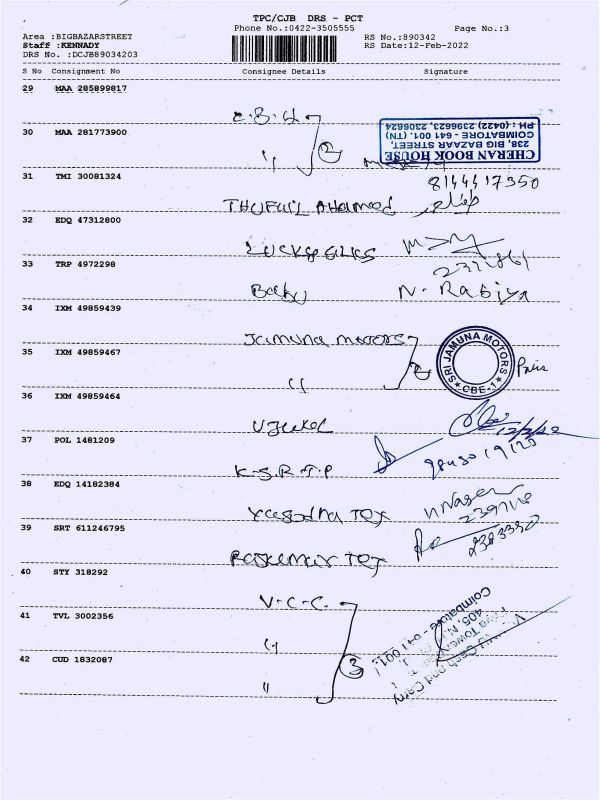 TPC/CJB DRS - PCT
Phone No.:0422-3505555 Page No.:3
Area :BIGBAZARSTREET RS No.:890342
Staff :KENNADY RS Date:12-Feb-2022
DRS No. :DCJB89034203
S No Consignment No Consignee Details Signature
29 MAA 285899817
C.B.H
30 MAA 281773900
" 2
CHERAN BOOK HOUSE
238, BIG BAZAAR STREET,
COIMBATORE - 641 001. (TN)
PH : (0422) 2396623, 2306624
31 TMI 30081324
8144417350
THUFAIL AHAMED
32 EDQ 47312800
33 TRP 4972298
Babu N. Rabiya
34 IXM 49859439
Jamuna motors 2
SRI JAMUNA MOTORS
CBE-1
35 IXM 49859467
"
36 IXM 49859464
12/2/22
37 POL 1481209
K.S.R.T.P
38 EDQ 14182384
Yasodha Tex
39 SRT 611246795
2383330
Raskumar Tex
40 STY 318292
V.C.C.
41 TVL 3002356
" 3
Coimbatore - 641 001.
42 CUD 1832087
"